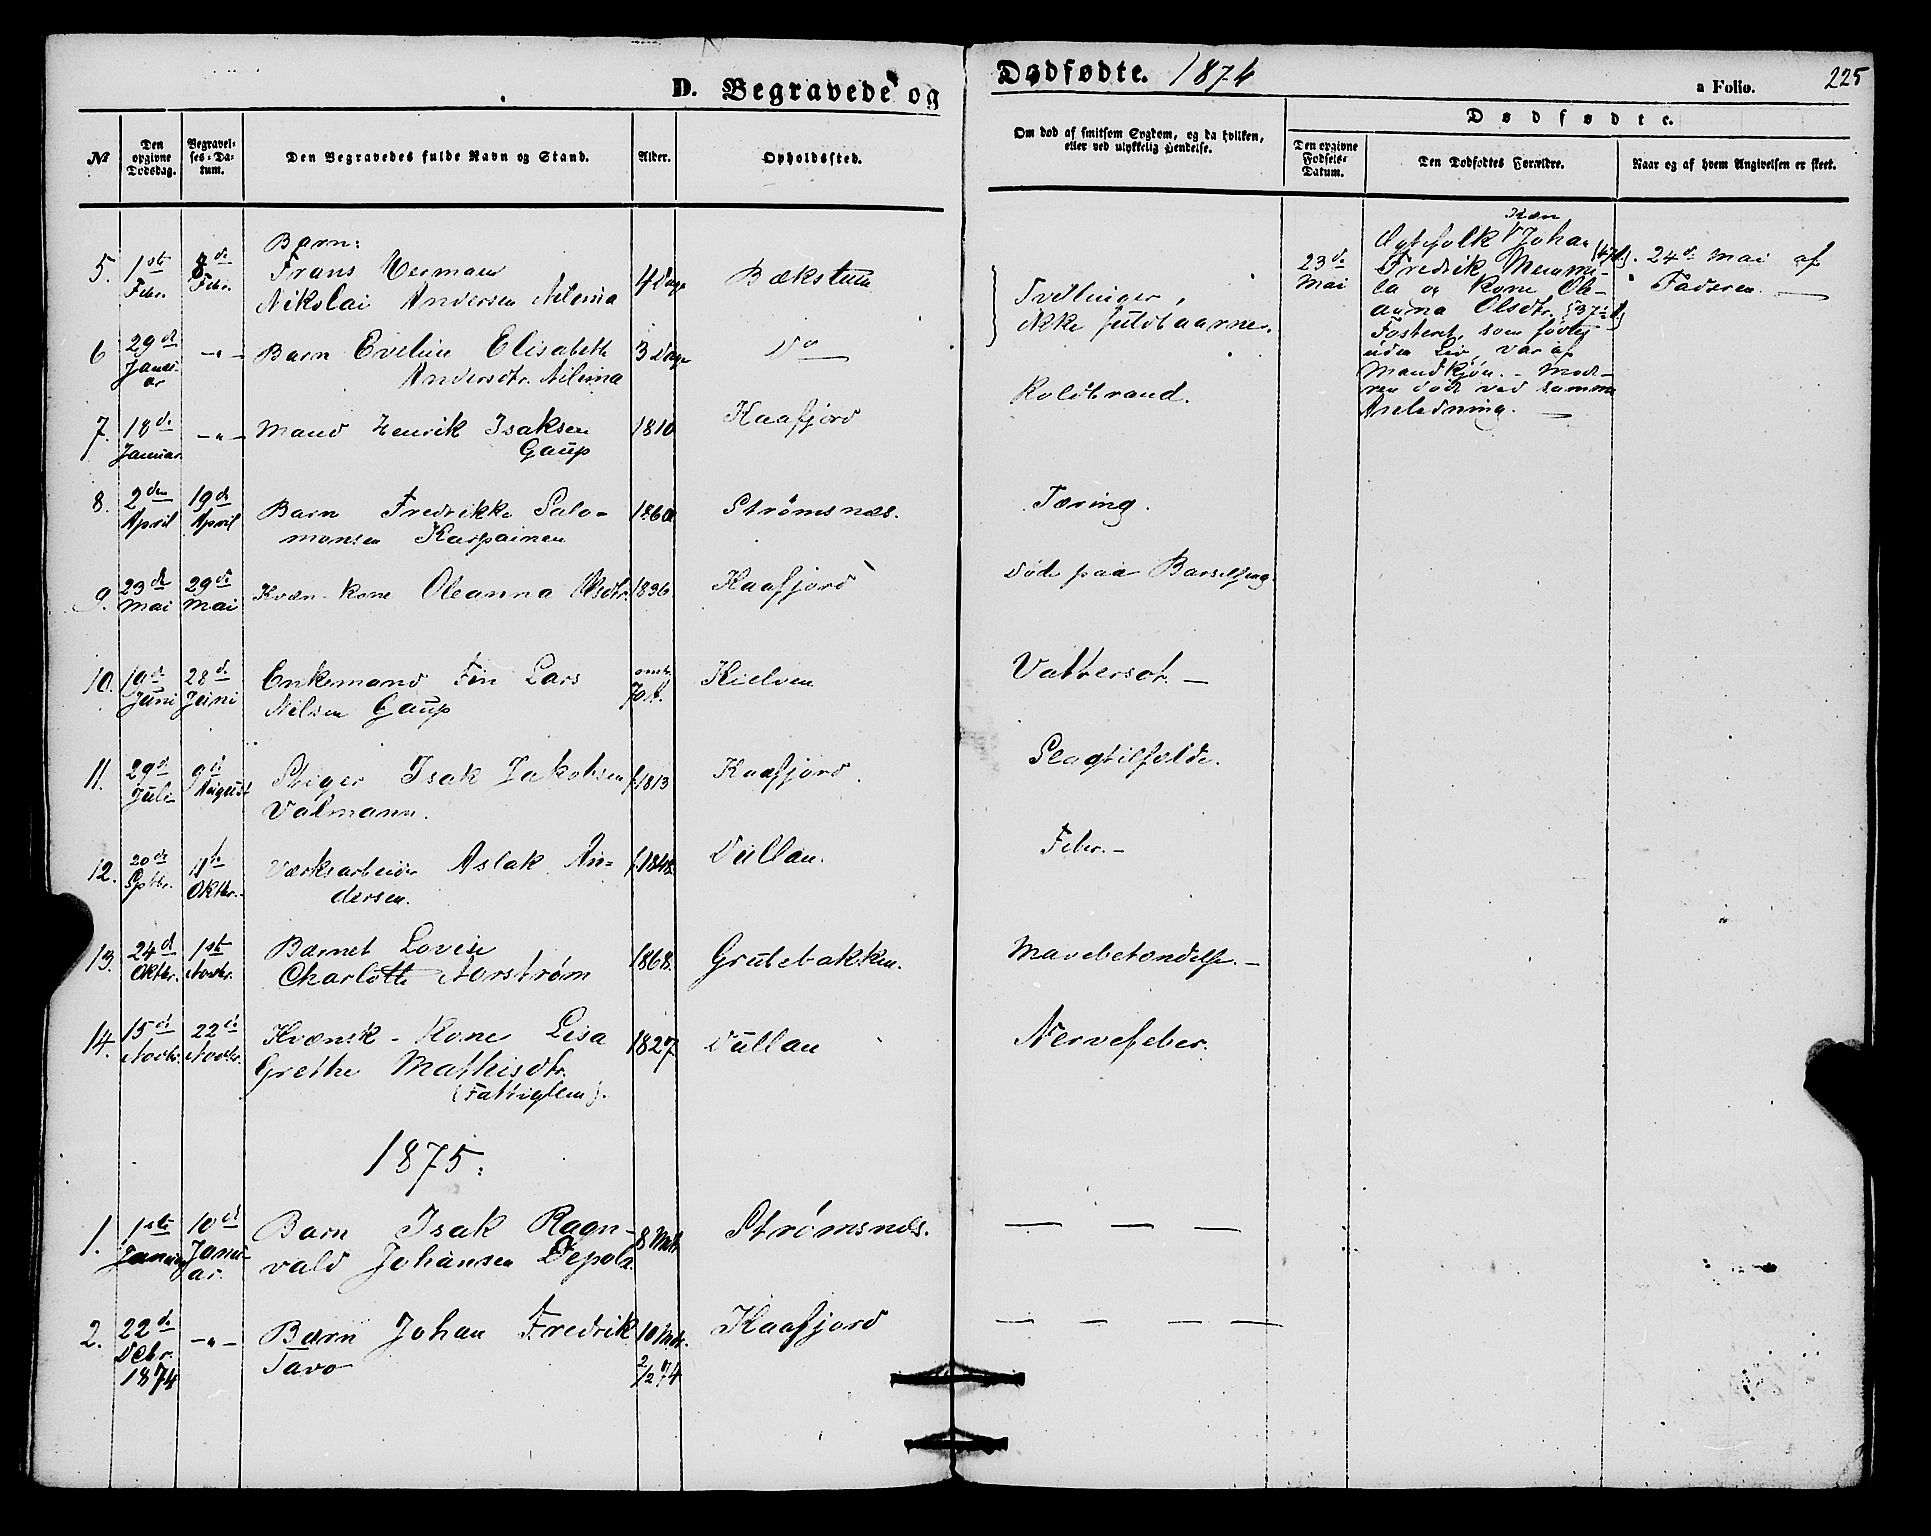 D. Begravede og
Dødfødte. 1874
a Folio.
225
No
Den opgivne Dødsdag.
Begravelses-Datum.
Den Begravedes fulde Navn og Stand.
Alder.
Opholdssted.
Om død af smitsom Sygdom, og da hvilken,
eller ved ulykkelig Hendelse.
Dødfødte.
Den opgivne Fødsels-Datum.
Den Dødfødtes Forældre.
Naar og af hvem Angivelsen er skeet.
5. 1ste Febr. 8de Febr.
Barn:
Frans Herman
Nikolai Andersen Nilima
4 Dage
Bækstuen
Tvillinger,
ikke fuldbaarne.
23de Mai
Kvæn
Ægtefolk Johan
Fredrik Memmi-
la og Kone Ole-
anna Olsdtr.
Fosteret, som fødtes
uden Liv, var af
Mandkjøn. - Mod-
ren døde ved samme
Anledning. —
24de Mai af
Faderen. —
6 29de Januar -"-
Barn Eveline Elisabeth
Andersdtr. Nilima
3 Dage
Do
7. 18de Januar -"-
Mand Henrik Isaksen
Gaup
1810
Kaafjord
Koldbrand.
8. 2den April 19de April
Barn Fredrikke Salo-
monsen Karpainen
1860
Strømsnes.
Tæring.
9. 23de Mai 29de Mai
Kvæn-kone Oleanna Olsdtr.
1836
Kaafjord
Død paa Barselseng.
10. 19de Juni 28de Juni
Enkemand Fin Lars
Nilsen Gaup
omtr.
70 A.
Kielven
Vattersot. —
11. 29de Juli 9de August
Stiger Isak Jakobsen
Valmann.
f. 1813
Kaafjord.
Slagtilfælde.
12. 20de Sptbr. 11te Oktbr.
Værksarbeider Aslak An-
dersen.
f. 1848.
Dullau.
Feber. —
13. 24de Oktbr. 1ste Novbr.
Barnet Lovise
Charlotte Norstrøm
1868.
Grubebakken.
Mavebetændelse. —
14. 15de Novbr. 22de Novbr.
Kvænsk-Kone Lisa
Grethe Mathisdtr.
(Fattiglem).
1827
Dullau
Nervefeber.
1875.
1. 1ste Januar 10de Januar.
Barn Isak Ragn-
vald Johansen
8 Mdr.
Strømsnes.
— — —
2. 22de Debr. 1874 -"-
Barn Johan Fredrik
Tavo
10 Mdr.
2/2 74
Kaafjord
— — — —